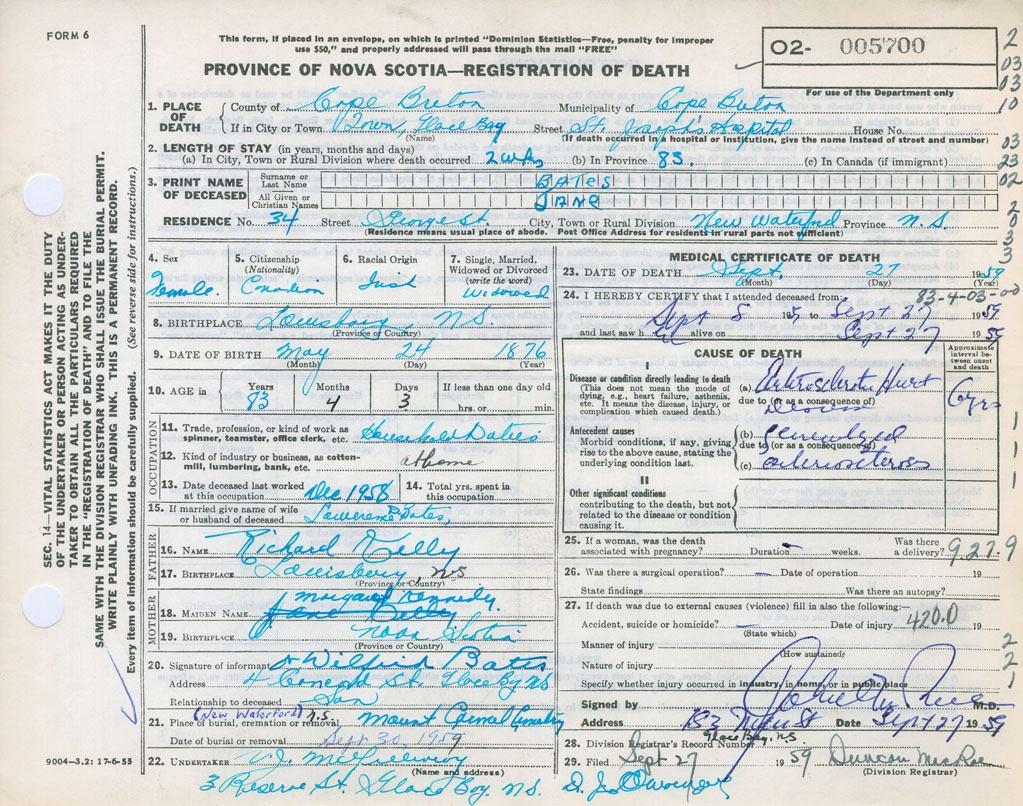 FORM 6
This form, if placed in an envelope, on which is printed "Dominion Statistics—Free, penalty for improper
use $50," and properly addressed will pass through the mail "FREE"
PROVINCE OF NOVA SCOTIA—REGISTRATION OF DEATH
O2- 005700
For use of the Department only
2
03
03
10
03
23
02
2
0
3
3
SEC. 14—VITAL STATISTICS ACT MAKES IT THE DUTY
OF THE UNDERTAKER OR PERSON ACTING AS UNDER-
TAKER TO OBTAIN ALL THE PARTICULARS REQUIRED
IN THE "REGISTRATION OF DEATH" AND TO FILE THE
SAME WITH THE DIVISION REGISTRAR WHO SHALL ISSUE THE BURIAL PERMIT.
WRITE PLAINLY WITH UNFADING INK. THIS IS A PERMANENT RECORD.
Every item of information should be carefully supplied. (See reverse side for instructions.)
1. PLACE OF DEATH County of Cape Breton Municipality of Cape Breton
If in City or Town Town, Glace Bay Street St. Joseph's Hospital House No.
(Name) (If death occurred in a hospital or institution, give the name instead of street and number)
2. LENGTH OF STAY (in years, months and days)
(a) In City, Town or Rural Division where death occurred 2 wks (b) In Province 83. (c) In Canada (if immigrant)
3. PRINT NAME OF DECEASED
Surname or Last Name BATES
All Given or Christian Names JANE
RESIDENCE No. 34 Street George St. City, Town or Rural Division New Waterford Province N.S.
(Residence means usual place of abode. Post Office Address for residents in rural parts not sufficient)
4. Sex
Female.
5. Citizenship
(Nationality)
Canadian
6. Racial Origin
Irish
7. Single, Married,
Widowed or Divorced
(write the word)
Widowed
8. BIRTHPLACE Louisbourg, N.S.
(Province or Country)
9. DATE OF BIRTH May 24 1876
(Month) (Day) (Year)
10. AGE in Years Months Days If less than one day old
83 4 3 hrs. or min.
OCCUPATION
11. Trade, profession, or kind of work as
spinner, teamster, office clerk, etc. Household Duties
12. Kind of industry or business, as cotton-
mill, lumbering, bank, etc. at home
13. Date deceased last worked
at this occupation Dec 1958
14. Total yrs. spent in
this occupation
15. If married give name of wife
or husband of deceased Lawrence Bates,
FATHER
16. NAME Richard Kelly
17. BIRTHPLACE Louisbourg, N.S
(Province or Country)
MOTHER
Margaret Kennedy.
18. MAIDEN NAME Jane Kelly
19. BIRTHPLACE Nova Scotia
(Province or Country)
20. Signature of informant Wilfrid Bates
Address 4 St. Glace Bay NS
Relationship to deceased Son
(New Waterford) N.S.
21. Place of burial, cremation or removal Mount Carmel Cemetery
Date of burial or removal Sept 30, 1959
22. UNDERTAKER V.J. McGillivray
(Name and address)
3 Reserve St. Glace Bay. N.S.
9004-3.2: 17-6-55
MEDICAL CERTIFICATE OF DEATH
23. DATE OF DEATH Sept. 27 1959
(Month) (Day) (Year)
83-4-03-00
24. I HEREBY CERTIFY that I attended deceased from:
Sept 8 19 to Sept 27 1959
and last saw h er alive on Sept 27 1959
CAUSE OF DEATH
Approximate
interval be-
tween onset
and death
I
Disease or condition directly leading to death
(This does not mean the mode of
dying, e.g., heart failure, asthenia,
etc. It means the disease, injury, or
complication which caused death.)
(a) Arteriosclerotic Heart
due to (or as a consequence of)
Disease
6 yrs
Antecedent causes
Morbid conditions, if any, giving
rise to the above cause, stating the
underlying condition last.
(b) generalized
due to (or as a consequence of)
(c) arteriosclerosis
1
1
1
II
Other significant conditions
contributing to the death, but not
related to the disease or condition
causing it.
25. If a woman, was the death
associated with pregnancy? — Duration weeks. Was there
a delivery? 9.27.9
26. Was there a surgical operation? — Date of operation 19
State findings Was there an autopsy?
27. If death was due to external causes (violence) fill in also the following:—
Accident, suicide or homicide? — Date of injury 420.0 19
(State which)
Manner of injury 2
(How sustained)
Nature of injury 2
Specify whether injury occurred in industry, in home, or in public place 1
Signed by M.D.
Address Date Sept 27 1959
Glace Bay, N.S
28. Division Registrar's Record Number
29. Filed Sept 27 1959 Duncan MacRae
(Division Registrar)